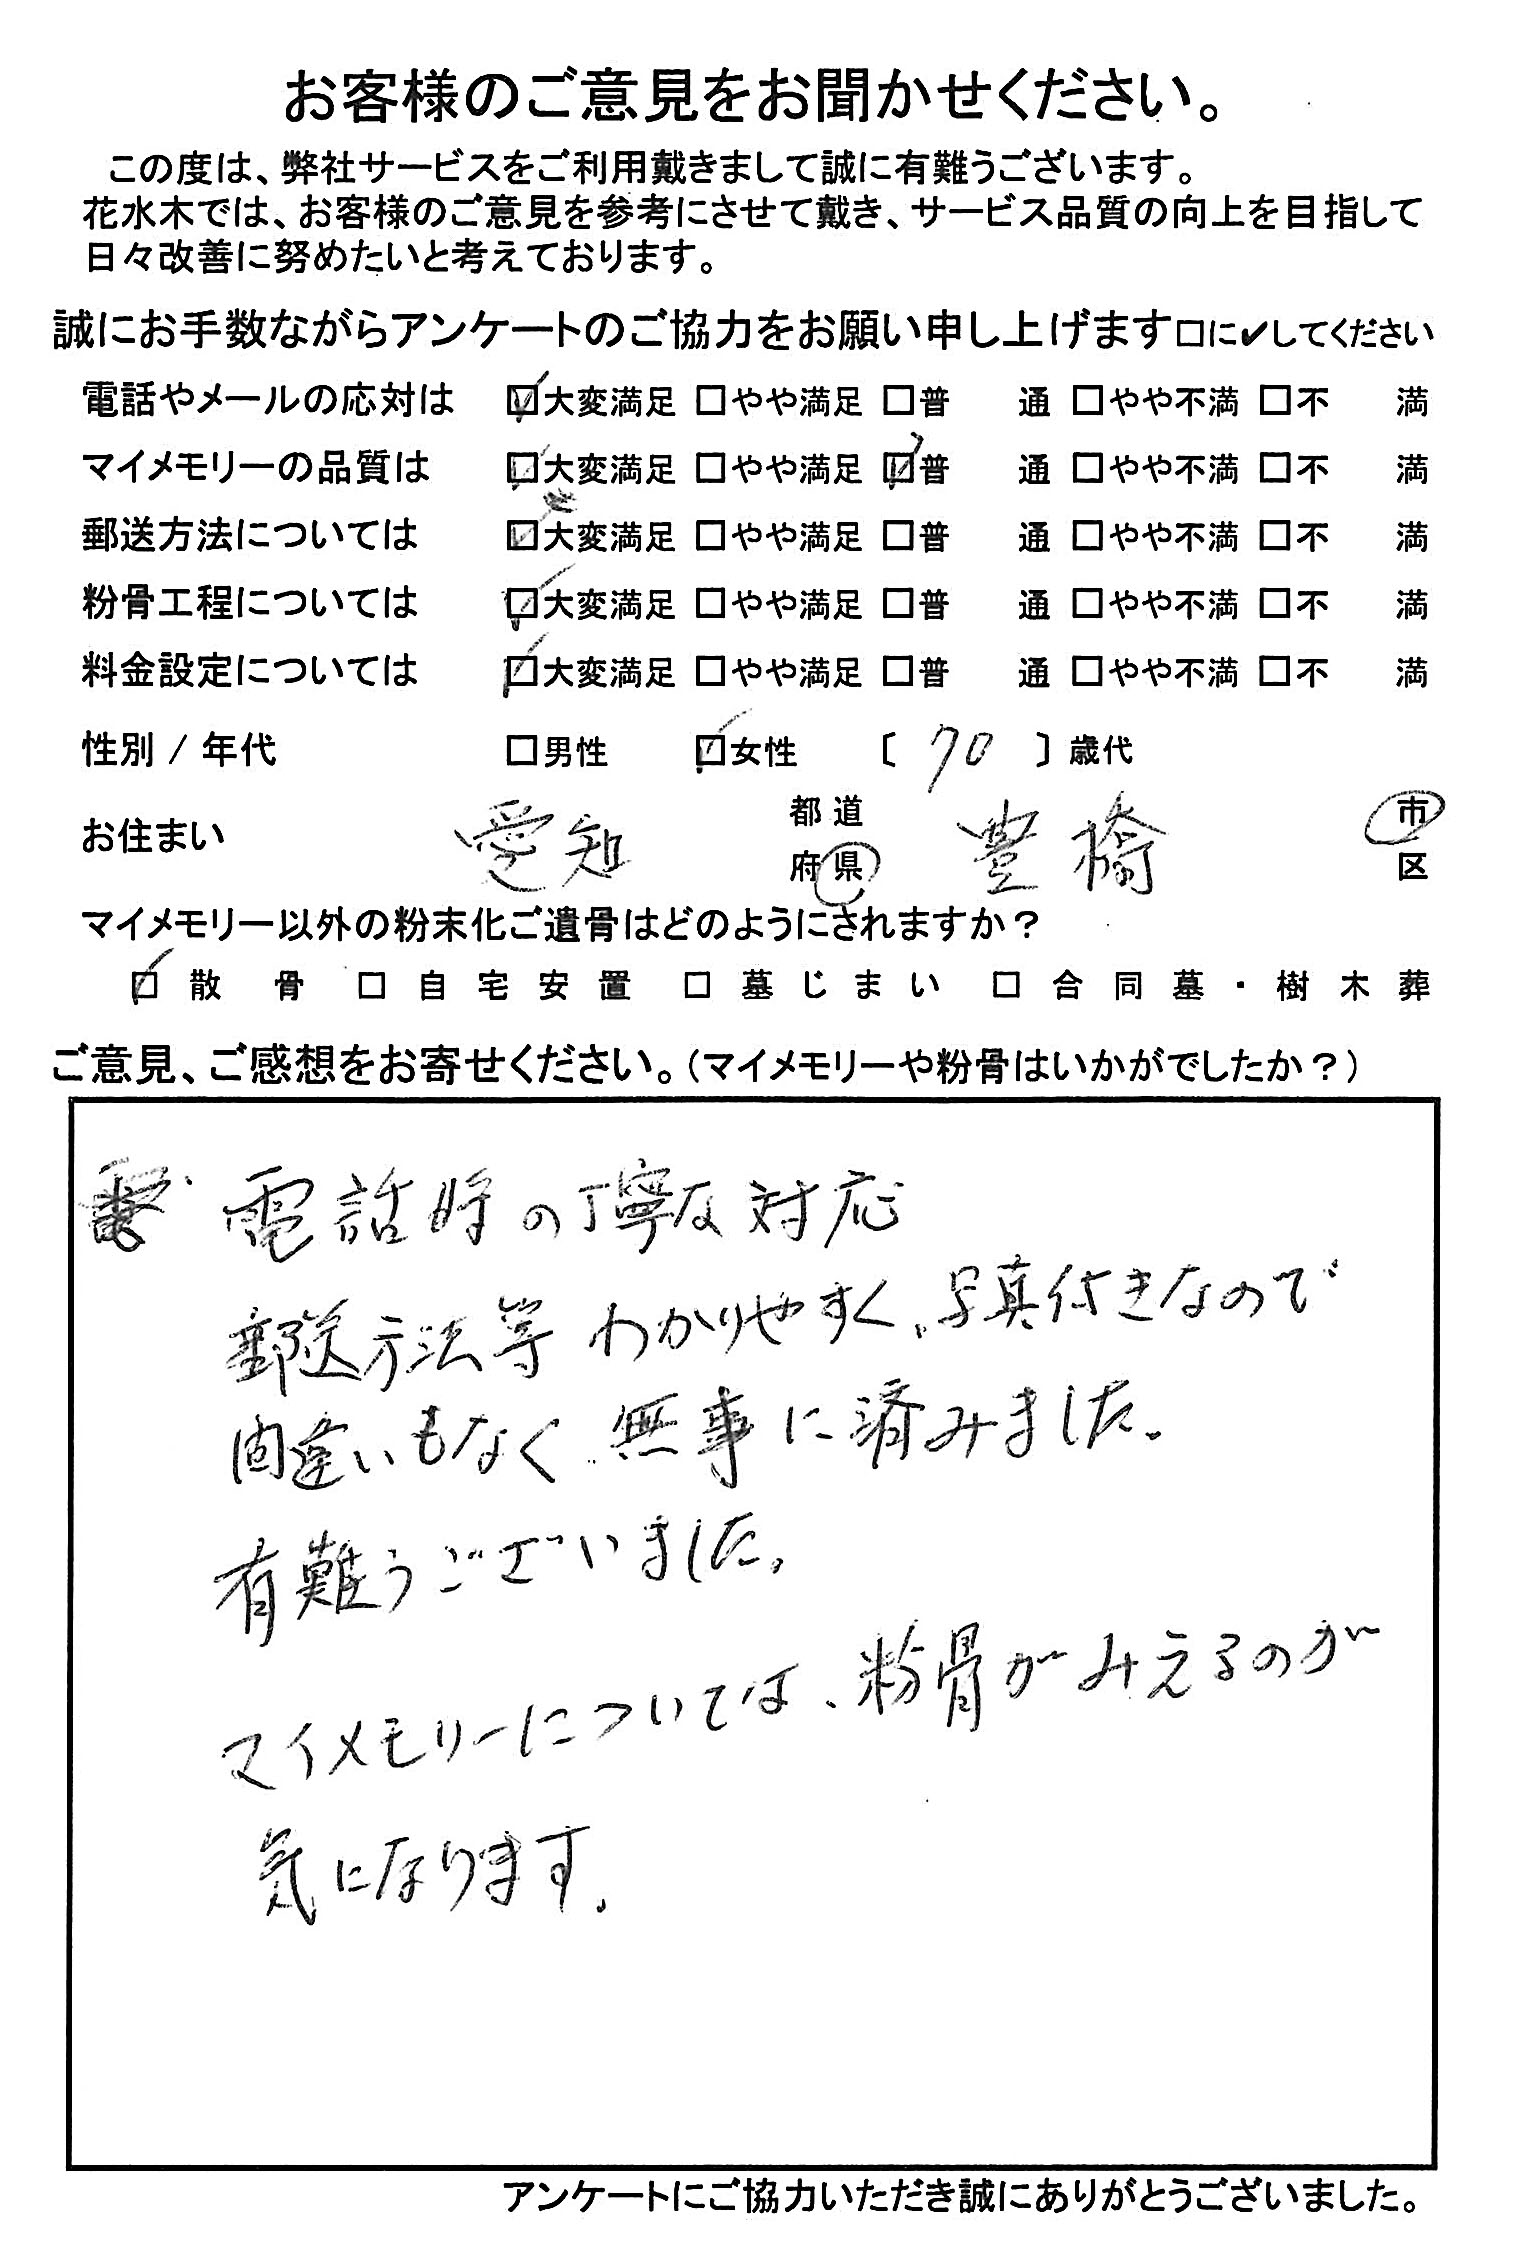 お客様のご意見をお聞かせください。
この度は、弊社サービスをご利用戴きまして誠に有難うございます。
花水木では、お客様のご意見を参考にさせて戴き、サービス品質の向上を目指して
日々改善に努めたいと考えております。
誠にお手数ながらアンケートのご協力をお願い申し上げます□に✔してください
電話やメールの応対は ☑大変満足 □やや満足 □普 通 □やや不満 □不 満
マイメモリーの品質は □大変満足 □やや満足 ☑普 通 □やや不満 □不 満
郵送方法については ☑大変満足 □やや満足 □普 通 □やや不満 □不 満
粉骨工程については ☑大変満足 □やや満足 □普 通 □やや不満 □不 満
料金設定については ☑大変満足 □やや満足 □普 通 □やや不満 □不 満
性別 / 年代 □男性 ☑女性 〔 70 〕歳代
お住まい 愛知 都道府県 豊橋 市区
マイメモリー以外の粉末化ご遺骨はどのようにされますか？
☑ 散骨 □ 自宅安置 □ 墓じまい □ 合同墓・樹木葬
ご意見、ご感想をお寄せください。（マイメモリーや粉骨はいかがでしたか？）
電話時の丁寧な対応
郵送方法等わかりやすく、写真付きなので
間違いもなく、無事に済みました。
有難うございました。
マイメモリーについては、粉骨がみえるのが
気になります。
アンケートにご協力いただき誠にありがとうございました。